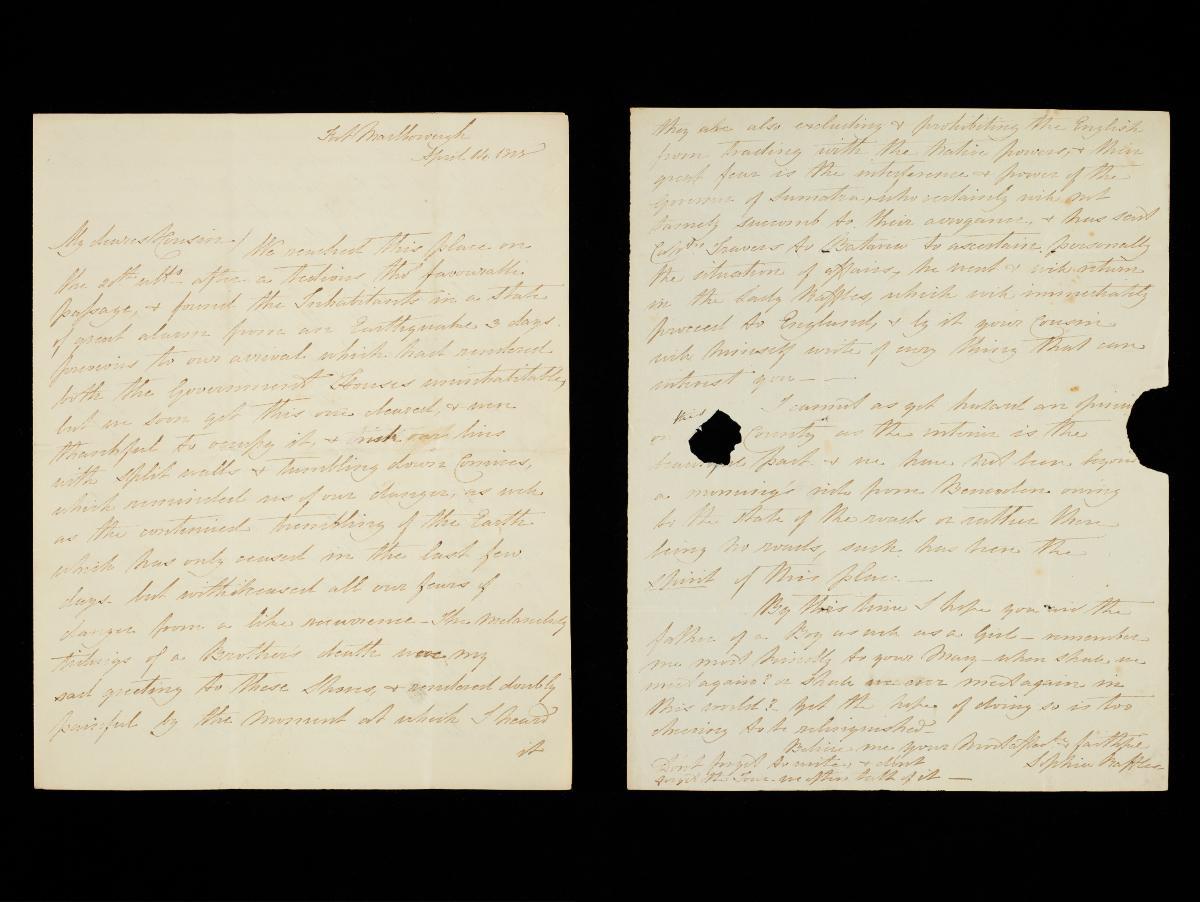 Fort Marlborough
April 14. 1818
My dearest Cousin / We reached this place on
the 20th ulto. after a tedious tho' favourable
passage, & found the Inhabitants in a State
of great alarm from an Earthquake 3 days
previous to our arrival which had rendered
both the Government Houses uninhabitable,
but we soon got this one cleared, & were
thankful to occupy it, & risk our lives
with split walls & tumbling down Cornices,
which reminded us of our danger, as well
as the continued trembling of the Earth
which has only ceased in the last few
days. but with it ceased all our fears of
danger from a like recurrence - The melancholy
tidings of a Brother's death were my
sad greeting to these Shores, & rendered doubly
painful by the moment at which I heard
it
they are also excluding & prohibiting the English
from trading with the Native powers, & their
great fear is the interference & power of the
Governor of Sumatra, who certainly will not
tamely succumb to their arrogance, & has sent
Captn. Travers to Batavia to ascertain personally
the situation of affairs, he went & will return
in the Lady Raffles, which will immediately
proceed to England, & by it your Cousin
will himself write of every thing that can
interest you - -
I cannot as yet hazard an opinion
on this Country as the interior is the
beautiful part & we have not been beyond
a morning's ride from Bencoolen owing
to the state of the roads or rather there
being no roads, such has been the
spirit of this place. -
By this time I hope you are the
father of a Boy as well as a Girl - remember
me most kindly to your Mary - when shall we
meet again? or shall we ever meet again in
this world? yet the hope of doing so is too
cheering to be relinquished -
Believe me your most affect. & faithful
Sophia Raffles
Don't forget to write, & don't
forget the Tour we often talk of it -